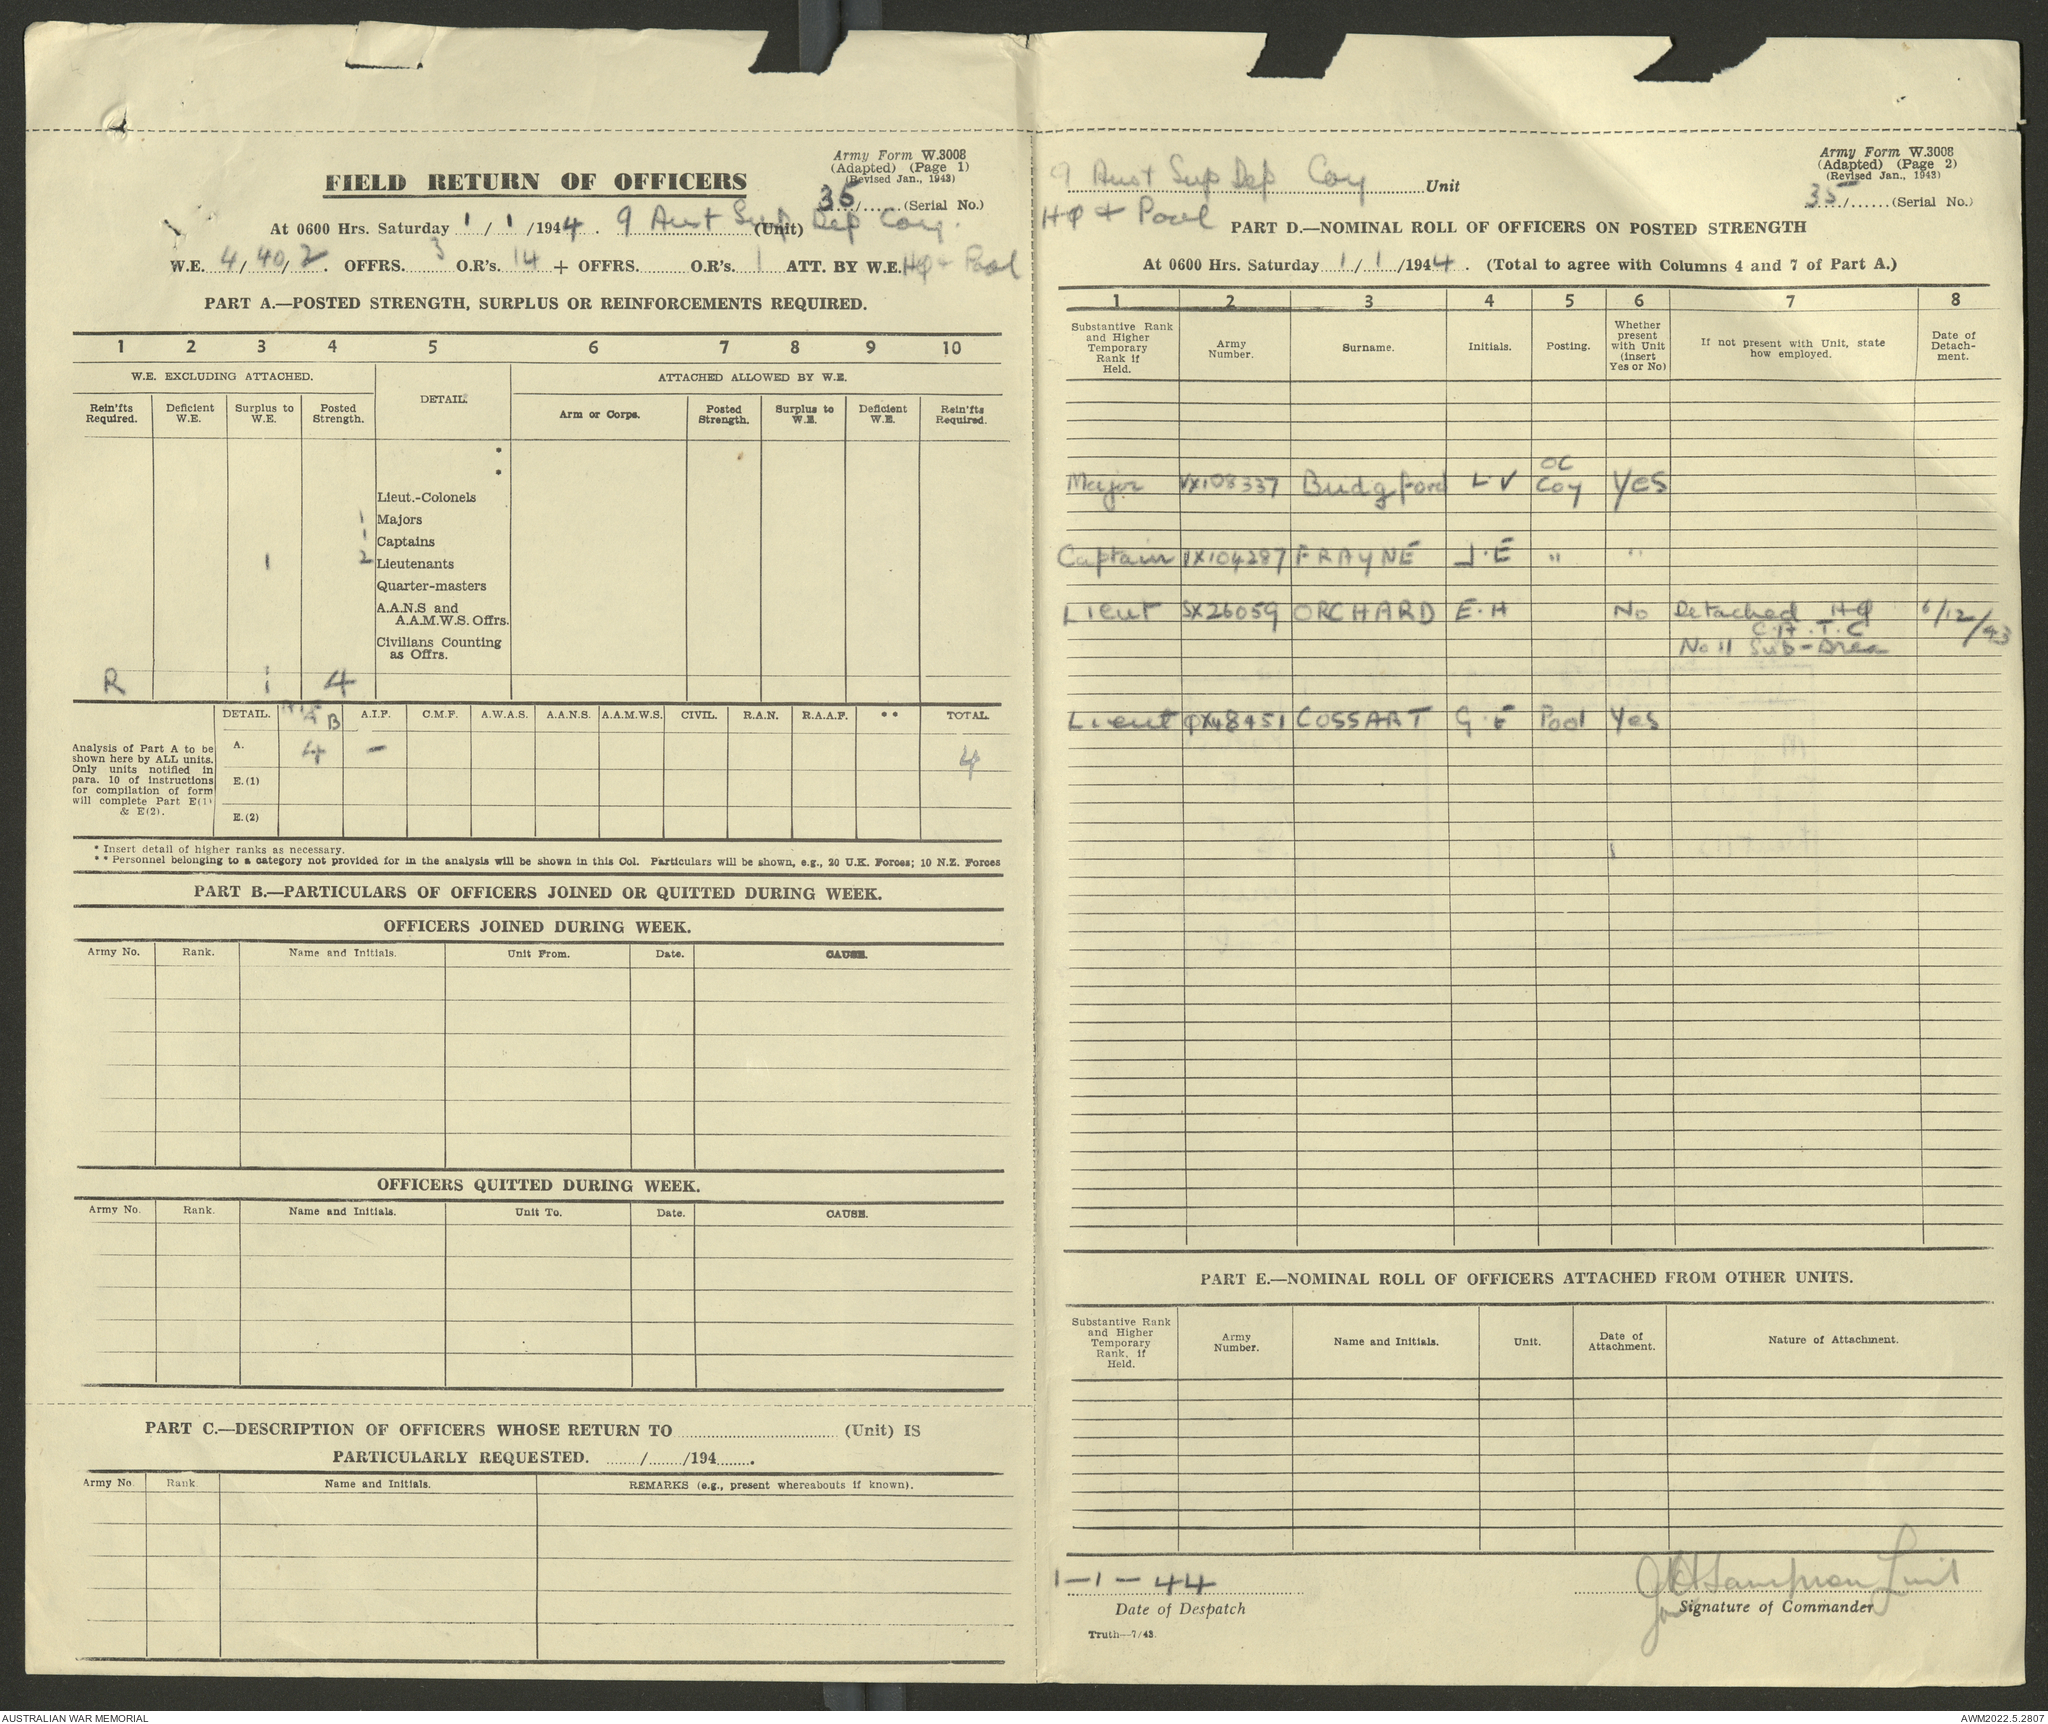 Army Form W.3008
(Adapted) (Page 1)
(Revised Jan., 1943)
FIELD RETURN OF OFFICERS
35/......(Serial No.)
At 0600 Hrs. Saturday 1/1/1944. 9 Aust Sup Dep Coy. (Unit)
W.E. 4/40/2. OFFRS. 3 O.R's. 14 + OFFRS. O.R's. 1 ATT. BY W.E. HQ + Pool
PART A.—POSTED STRENGTH, SURPLUS OR REINFORCEMENTS REQUIRED.
1 2 3 4 5 6 7 8 9 10
W.E. EXCLUDING ATTACHED. DETAIL. ATTACHED ALLOWED BY W.E.
Rein'fts Required. Deficient W.E. Surplus to W.E. Posted Strength. Arm or Corps. Posted Strength. Surplus to W.E. Deficient W.E. Rein'fts Required.
*
*
Lieut.-Colonels
1 Majors
1 Captains
1 2 Lieutenants
Quarter-masters
A.A.N.S and
A.A.M.W.S. Offrs.
Civilians Counting
as Offrs.
R 1 4
DETAIL. B A.I.F. C.M.F. A.W.A.S. A.A.N.S. A.A.M.W.S. CIVIL. R.A.N. R.A.A.F. ** TOTAL.
Analysis of Part A to be
shown here by ALL units.
Only units notified in
para. 10 of instructions
for compilation of form
will complete Part E(1)
& E(2).
A. 4 — 4
E.(1)
E.(2)
* Insert detail of higher ranks as necessary.
** Personnel belonging to a category not provided for in the analysis will be shown in this Col. Particulars will be shown, e.g., 20 U.K. Forces; 10 N.Z. Forces
PART B.—PARTICULARS OF OFFICERS JOINED OR QUITTED DURING WEEK.
OFFICERS JOINED DURING WEEK.
Army No. Rank. Name and Initials. Unit From. Date. CAUSE.
OFFICERS QUITTED DURING WEEK.
Army No. Rank. Name and Initials. Unit To. Date. CAUSE.
PART C.—DESCRIPTION OF OFFICERS WHOSE RETURN TO ............ (Unit) IS
PARTICULARLY REQUESTED. ......../......../194........
Army No. Rank. Name and Initials. REMARKS (e.g., present whereabouts if known).
Army Form W.3008
(Adapted) (Page 2)
(Revised Jan., 1943)
9 Aust Sup Dep Coy Unit
35/......(Serial No.)
HQ + Pool
PART D.—NOMINAL ROLL OF OFFICERS ON POSTED STRENGTH
At 0600 Hrs. Saturday 1/1/1944. (Total to agree with Columns 4 and 7 of Part A.)
1 2 3 4 5 6 7 8
Substantive Rank and Higher Temporary Rank if Held. Army Number. Surname. Initials. Posting. Whether present with Unit (insert Yes or No) If not present with Unit, state how employed. Date of Detachment.
Major VX108337 Budgford L V OC Coy Yes
Captain VX104287 FRAYNE J.E " "
Lieut SX26059 ORCHARD E.H No Detached HQ 6/12/43
C.A.T.C
No 11 Sub-Area
Lieut QX48451 COSSART G.E Pool Yes
PART E.—NOMINAL ROLL OF OFFICERS ATTACHED FROM OTHER UNITS.
Substantive Rank and Higher Temporary Rank, if Held. Army Number. Name and Initials. Unit. Date of Attachment. Nature of Attachment.
1-1-44
Date of Despatch
Signature of Commander
Truth—7/43.
AUSTRALIAN WAR MEMORIAL
AWM2022.5.2807